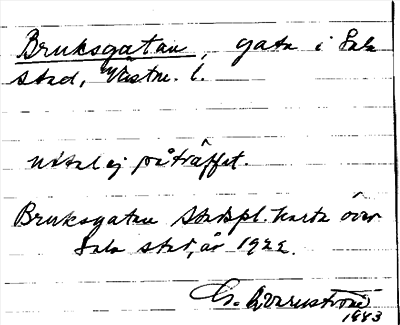 Bruksgatan, gata i Sala
stad, Västm. l.
uttal ej påträffat.
Bruksgatan Stadspl. karta över
Sala stad, år 1922.
G. Qvarnström
1983